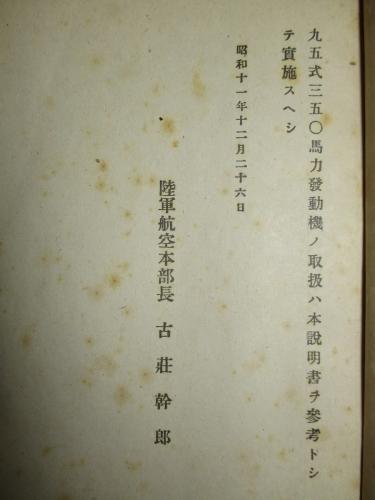 九五式三五〇馬力發動機ノ取扱ハ本說明書ヲ參考トシ
テ實施スヘシ
昭和十一年十二月二十六日
陸軍航空本部長 古莊幹郎